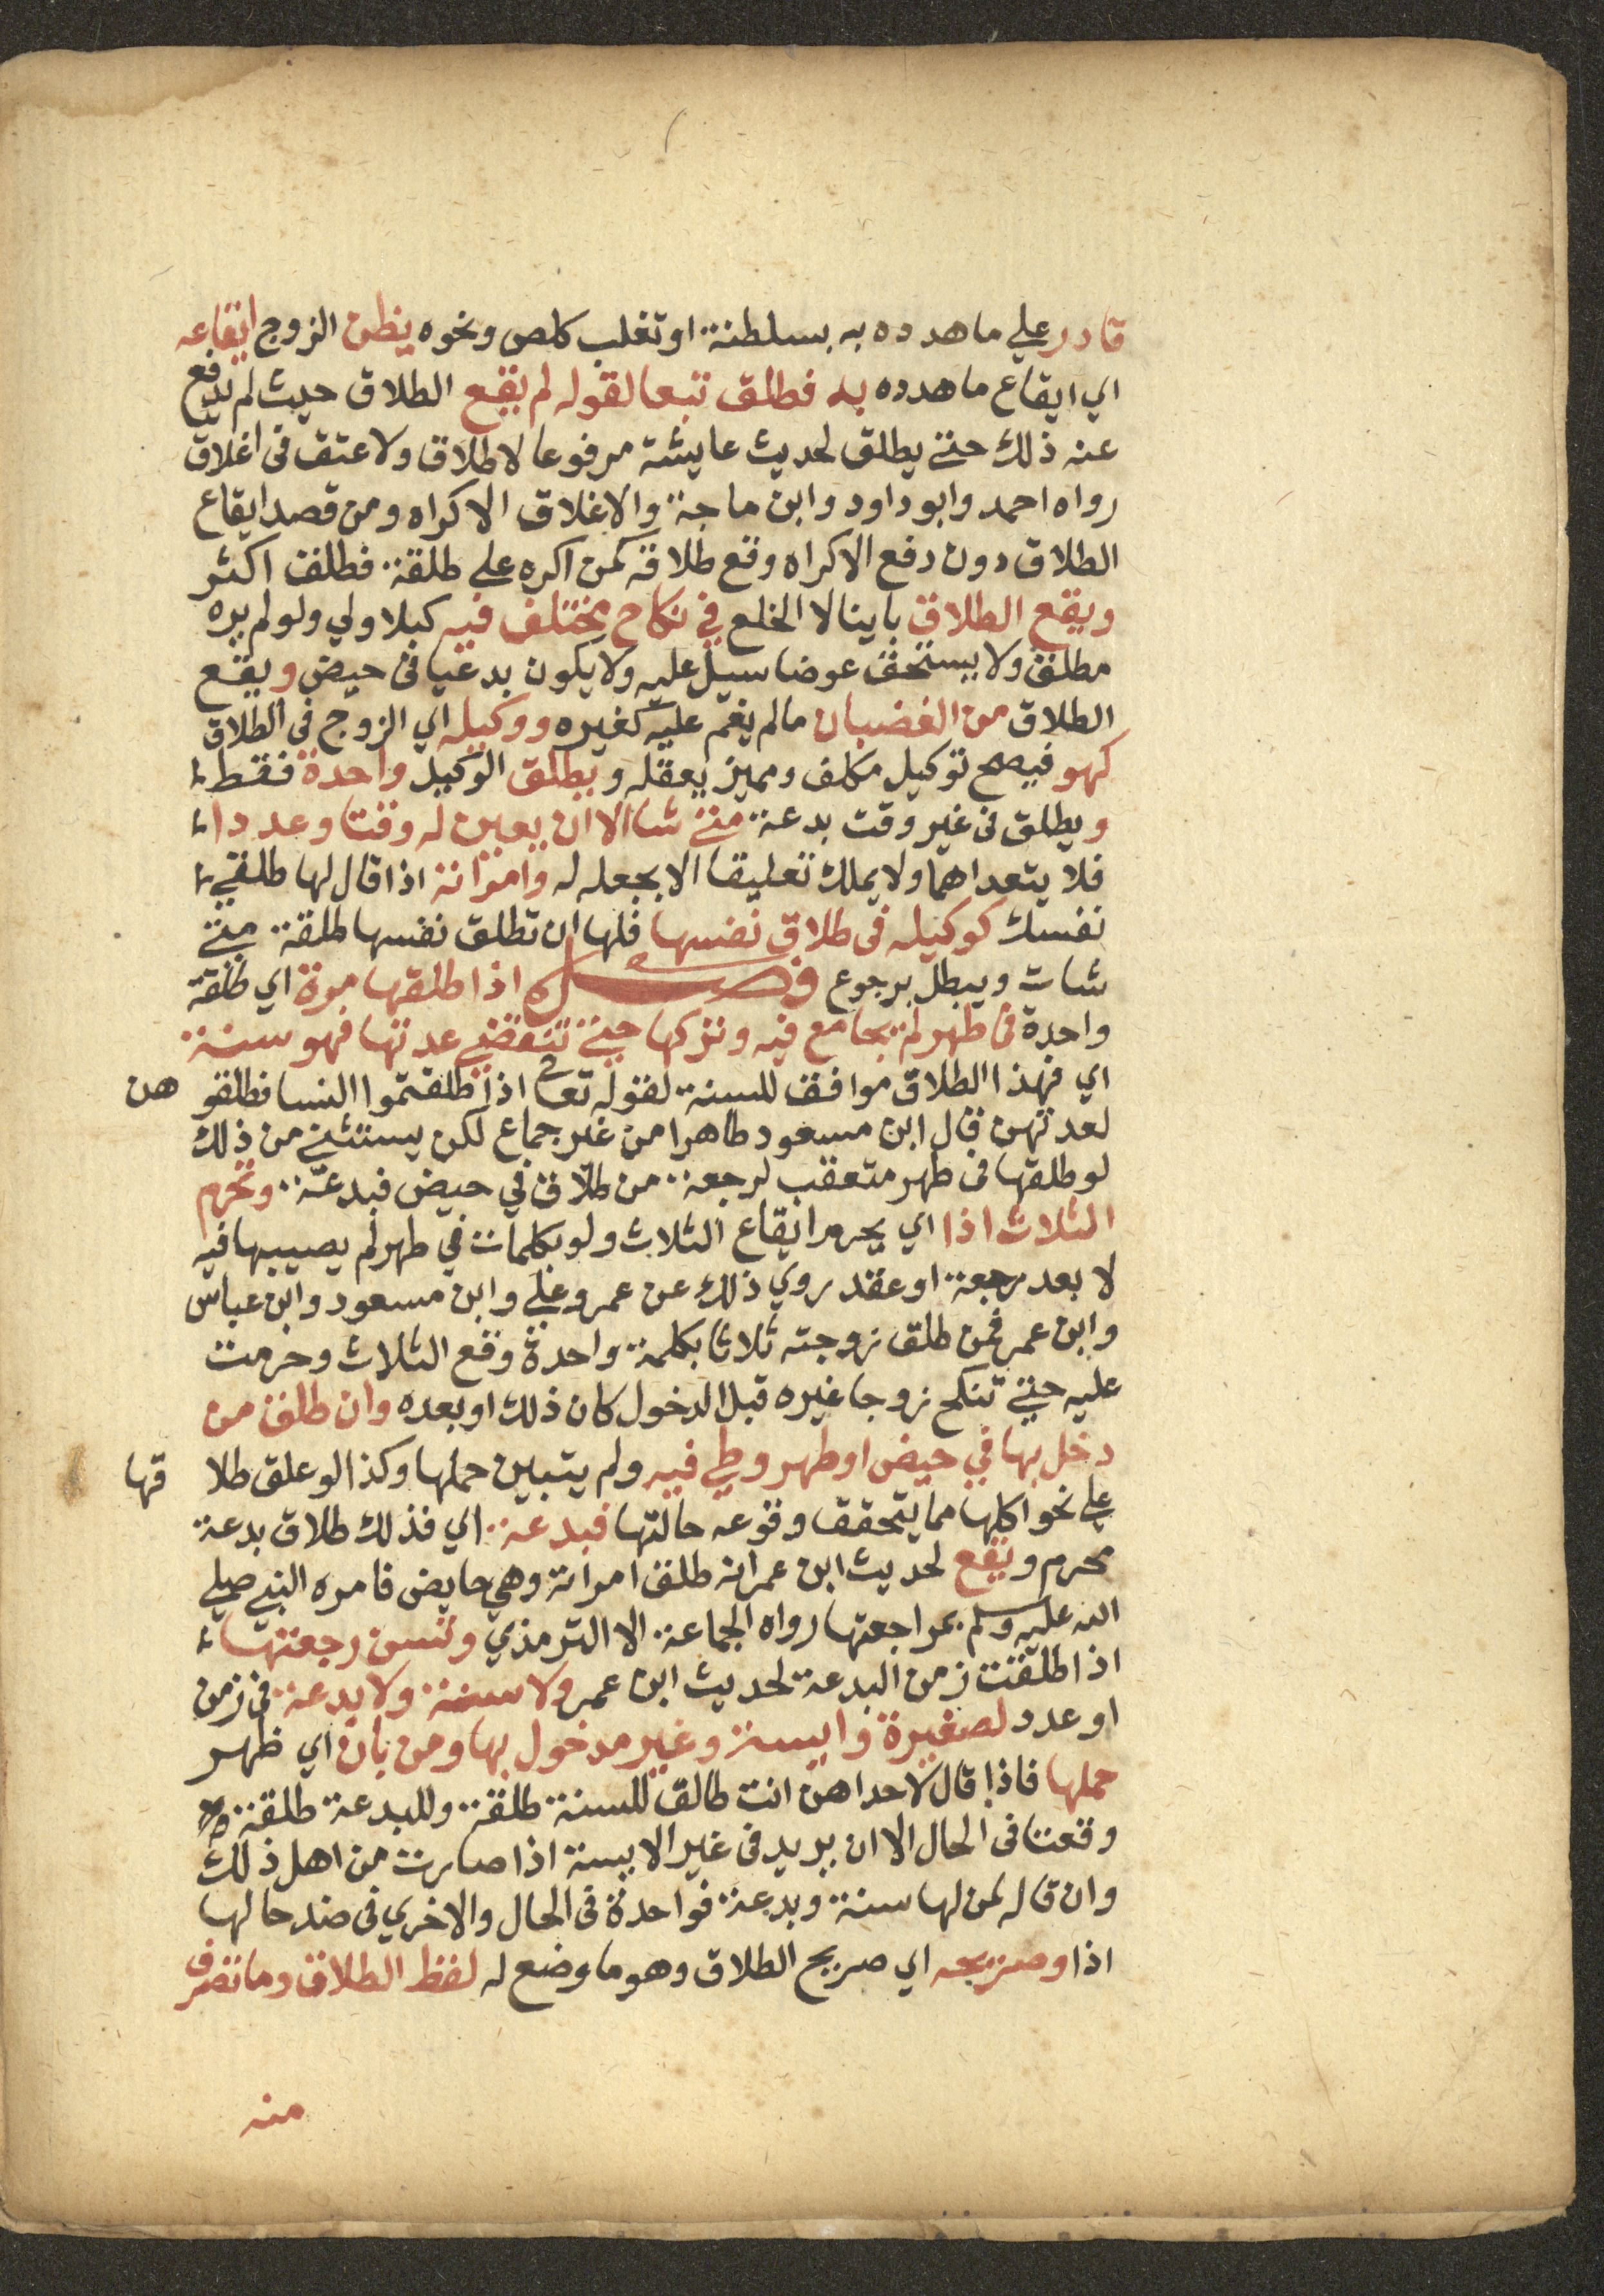 قادر علي ما هدده به بسلطنة او تغلب كلص ونحوه يظن الزوج ايقاعه
اي ايقاع ما هدده به فطلق تبعا لقوله لم يقع الطلاق حيث لم يدفع
عنه ذلك حتي يطلق لحديث عايشة مرفوعا لا طلاق ولا عتق في اغلاق
رواه احمد وابو داود وابن ماجة والاغلاق الاكراه ومن قصد ايقاع
الطلاق دون دفع الاكراه وقع طلاقه كمن اكره علي طلقة فطلق اكثر
ويقع الطلاق باينا لا الخلع في نكاح مختلف فيه كبلا ولي ولو لم يره
مطلق ولا يستحق عوضا سيل عليه ولا يكون بدعيا في حيض ويقع
الطلاق من الغضبان ما لم يغم عليه كغيره ووكيله اي الزوج في الطلاق
كهو فيصح توكيل مكلف ومميز يعقله ويطلق الوكيل واحدة فقط
ويطلق في غير وقت بدعة متي شا الا ان يعين له وقتا وعددا
فلا يتعداهما ولا يملك تعليقا الا بجعله له وامراته اذا قال لها طلقي
نفسك كوكيله في طلاق نفسها فلها ان تطلق نفسها طلقة متي
شات ويبطل برجوع فصل اذا طلقها مرة اي طلقة
واحدة في طهر لم يجامع فيه وتركها حتي تنقضي عدتها فهو سنة
اي فهذا الطلاق موافق للسنة لقوله تعا اذا طلقتموا النسا فطلقو هن
لعدتهن قال ابن مسعود طاهرا من غير جماع لكن يستثني من ذلك
لو طلقها في طهر متعقب لرجعة من طلاق في حيض فبدعة وتحرم
الثلاث اذا اي يحرم ايقاع الثلاث ولو بكلمات في طهر لم يصيبها فيه
لا بعد رجعة او عقد روي ذلك عن عمر وعلي وابن مسعود وابن عباس
وابن عمر فمن طلق زوجته ثلاثا بكلمة واحدة وقع الثلاث وحرمت
عليه حتي تنكح زوجا غيره قبل الدخول كان ذلك او بعده وان طلق من
دخل بها في حيض او طهر وطي فيه ولم يتبين حملها وكذا لو علق طلا قها
علي نحو اكلها مما يتحقق وقوعه حالتها فبدعة اي فذلك طلاق بدعة
محرم ويقع لحديث ابن عمر انه طلق امراته وهي حايض فامره النبي صلي
الله عليه وسلم بمراجعتها رواه الجماعة الا الترمذي وتسن رجعتها
اذا طلقت زمن البدعة لحديث ابن عمر ولا سنة ولا بدعة في زمن
او عدد لصغيرة وايسة وغير مدخول بها ومن بان اي ظهر
حملها فاذا قال لاحداهن انت طالق للسنة طلقة وللبدعة طلقة
وقعتا في الحال الا ان يريد في غير الايسة اذا صارت من اهل ذلك
وان قاله لمن لها سنة وبدعة فواحدة في الحال والاخري في ضد حالها
اذا وصريحه اي صريح الطلاق وهو ما وضع له لفظ الطلاق وما تصرف
منه